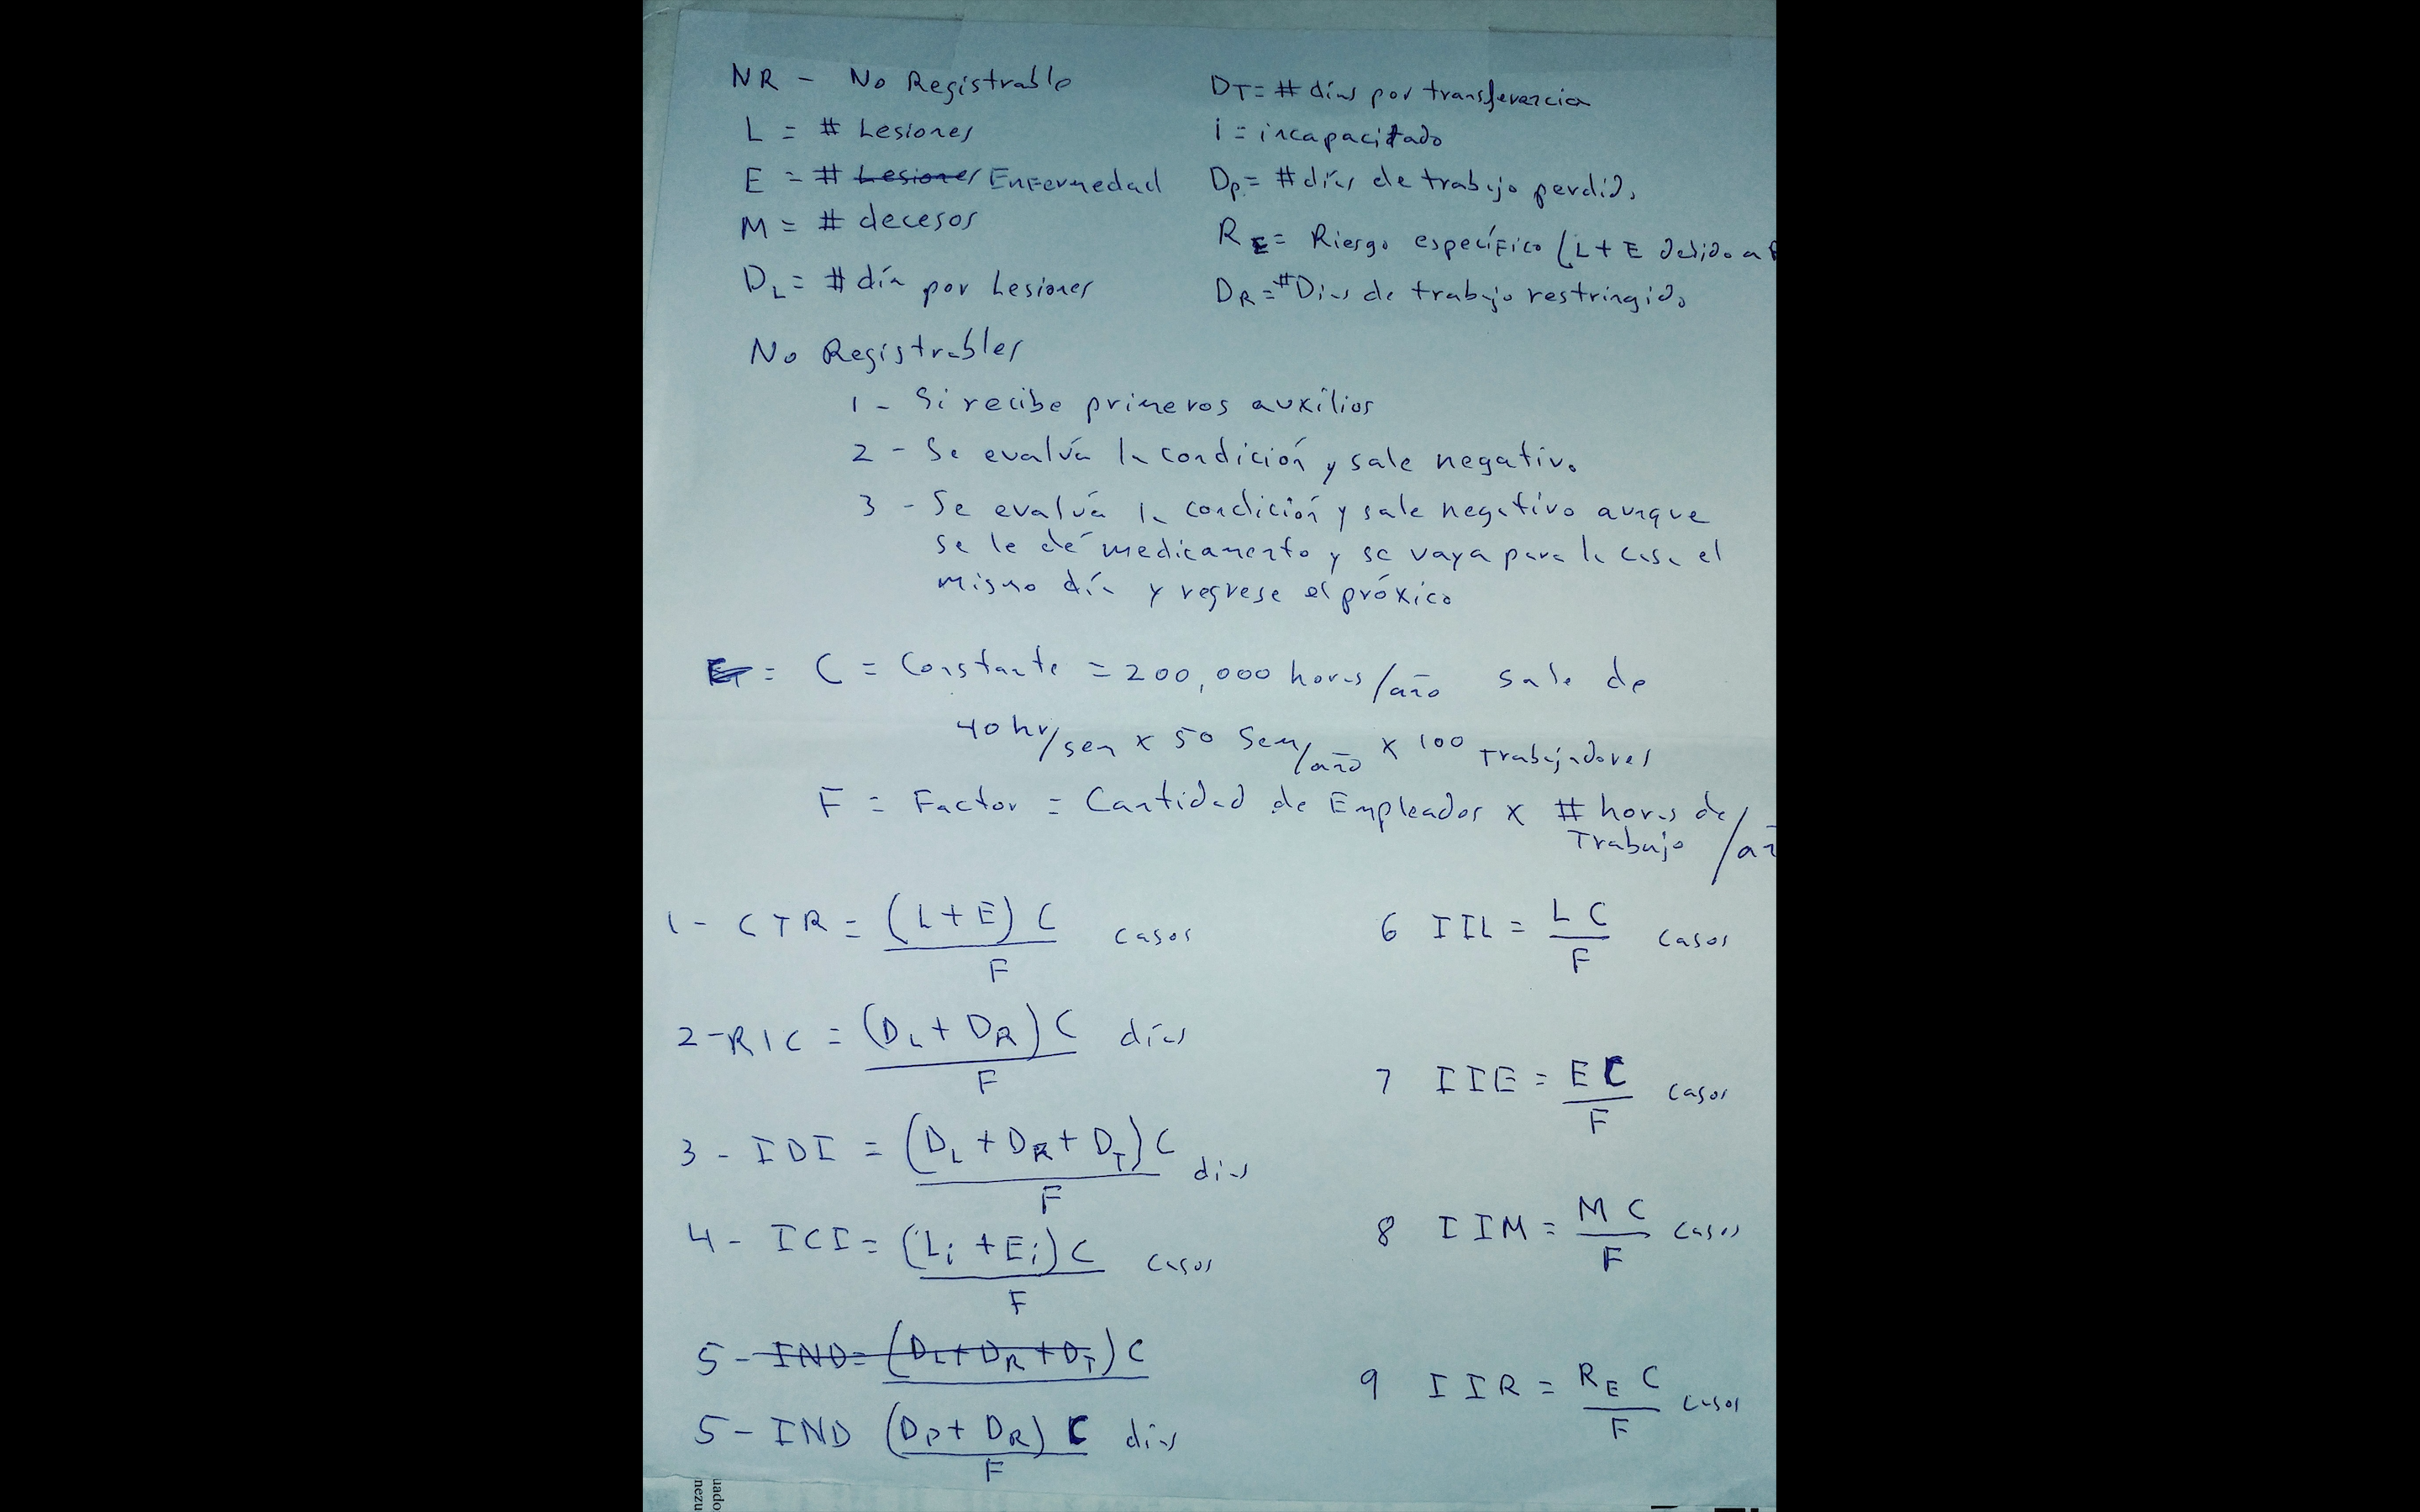 NR - No Registrable
L = # Lesiones
E = # Lesiones Enfermedad
M = # decesos
DL = # día por Lesiones
DT = # días por transferencia
i = incapacitado
Dp = # días de trabajo perdido
RE = Riesgo específico (L + E debido a
DR = # Días de trabajo restringido
No Registrables
1 - Si recibe primeros auxilios
2 - Se evalúa la condición y sale negativo
3 - Se evalúa la condición y sale negativo aunque
se le dé medicamento y se vaya para la casa el
mismo día y regrese el próxico
= C = Constante = 200,000 horas/año sale de
40 hr/sem x 50 Sem/año x 100 Trabajadores
F = Factor = Cantidad de Empleados x # horas de
Trabajo /añ
1 - CTR = (L + E) C casos
F
2 - RIC = (DL + DR) C días
F
3 - IDI = (DL + DR + DT) C días
F
4 - ICI = (Li + Ei) C casos
F
5 - IND = (DL + DR + DT) C
5 - IND (Dp + DR) C días
F
6 IIL = L C casos
F
7 IIE = E C casos
F
8 IIM = M C casos
F
9 IIR = RE C casos
F
uado
nezu